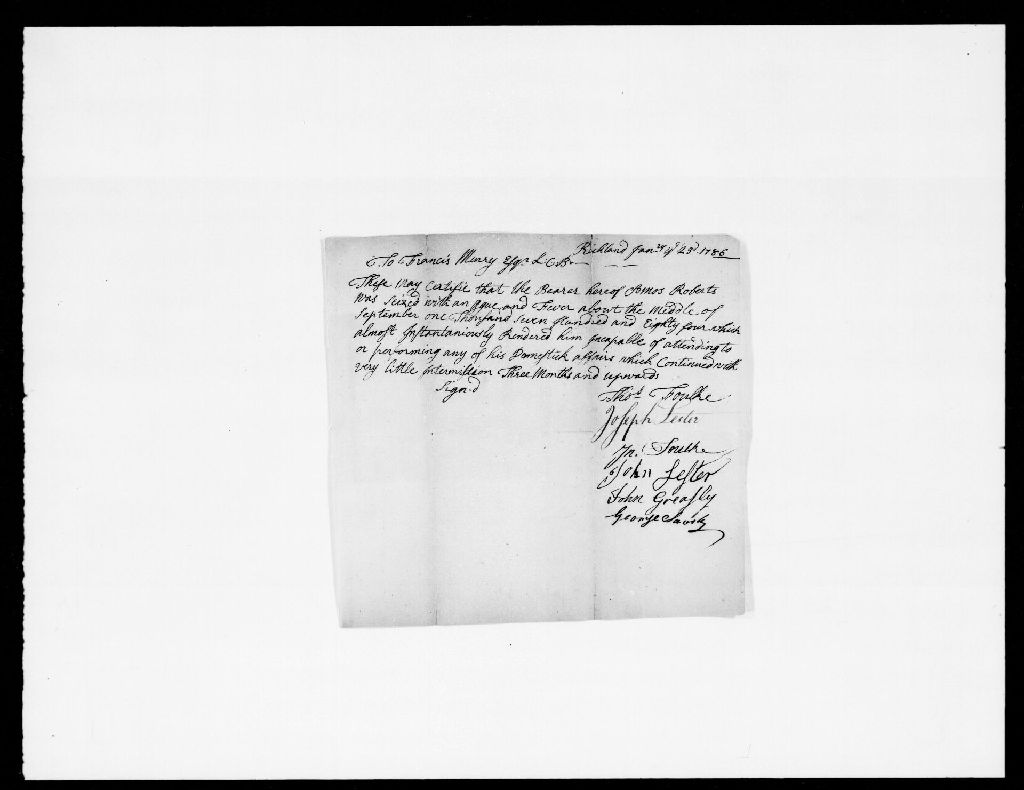 Richland Janry ye 23d 1786
To Francis Murry Esqr L C B
These may Certifie that the Bearer hereof Amos Roberts
Was Seized with an Ague and Fever about the Middle of
September one Thousand Seven Hundred and Eighty four which
almost Instantaniously Rendered him Incapable of attending to
or performing any of his Domestick affairs which Continued with
very little Intermission Three Months and upwards
Sign.d
Thos Foulke
Joseph Lester
Jn. Foulke
John Lester
John Greasly
George